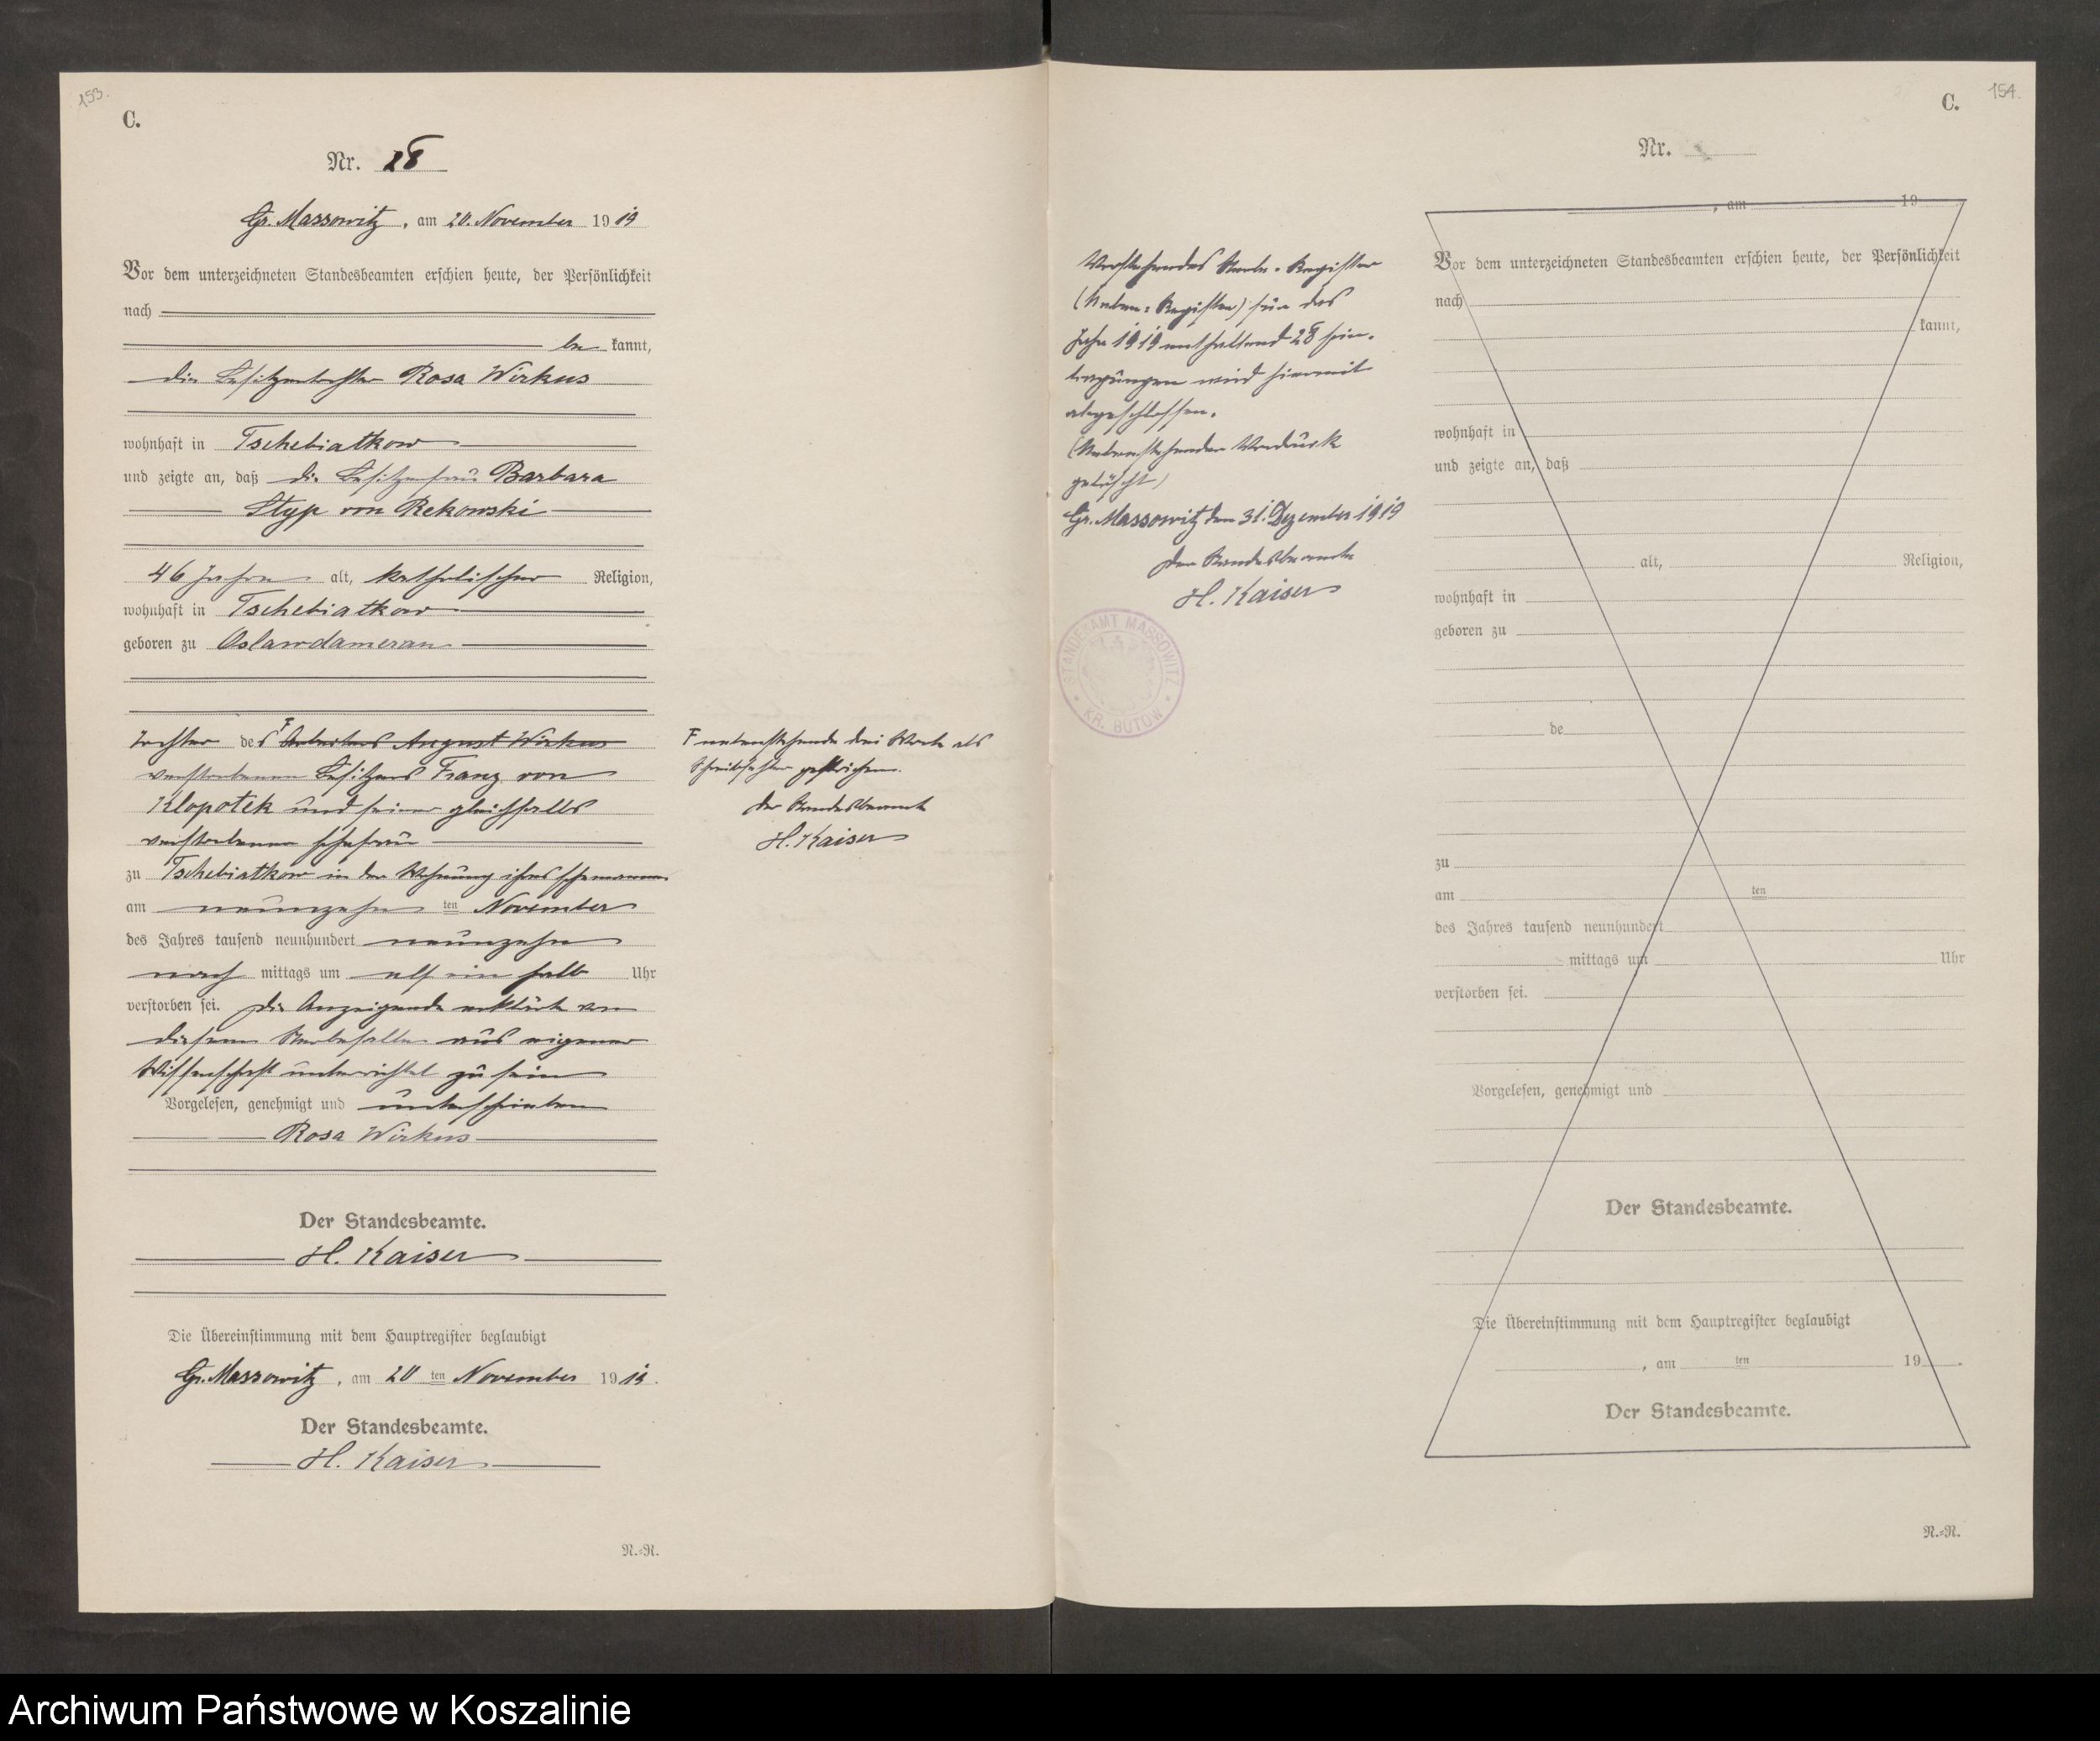 153.
C.
Nr. 28
Gr. Massowitz, am 20. November 1919
Vor dem unterzeichneten Standesbeamten erschien heute, der Persönlichkeit
nach
be kannt,
die Besitzertochter Rosa Wirkus
wohnhaft in Tschebiatkow
und zeigte an, daß die Besitzerfrau Barbara
Styp von Rekowski
46 Jahre alt, katholischer Religion,
wohnhaft in Tschebiatkow
geboren zu Oslawdamerau
Tochter des F Arbeiters August Wirkus
verstorbenen Besitzers Franz von
Klopotek und seiner gleichfalls
verstorbenen Ehefrau
zu Tschebiatkow in der Wohnung ihres Ehemannes
am neunzehn ten November
des Jahres tausend neunhundert neunzehn
nach mittags um elf ein halb Uhr
verstorben sei. Die Anzeigende erklärte von
diesem Sterbefalle aus eigener
Wissenschaft unterrichtet zu sein
Vorgelesen, genehmigt und unterschrieben
Rosa Wirkus
Der Standesbeamte.
H. Kaiser
Die Übereinstimmung mit dem Hauptregister beglaubigt
Gr. Massowitz, am 20 ten November 1919.
Der Standesbeamte.
H. Kaiser
N.=R.
F nebenstehende drei Worte als
Schreibfehler gestrichen.
Der Standesbeamte
H. Kaiser
Vorstehendes Sterbe-Register
(Neben-Register) für das
Jahr 1919 enthaltend 28 Ein-
tragungen wird hiermit
abgeschlossen.
(Nebenstehender Vordruck
gelöscht)
Gr. Massowitz den 31. Dezember 1919
Der Standesbeamte
H. Kaiser
STANDESAMT MASSOWITZ
* KR. BÜTOW *
C.
154.
Nr.
, am 19
Vor dem unterzeichneten Standesbeamten erschien heute, der Persönlichkeit
nach
kannt,
wohnhaft in
und zeigte an, daß
alt, Religion,
wohnhaft in
geboren zu
de
zu
am ten
des Jahres tausend neunhundert
mittags um Uhr
verstorben sei.
Vorgelesen, genehmigt und
Der Standesbeamte.
Die Übereinstimmung mit dem Hauptregister beglaubigt
, am ten 19 .
Der Standesbeamte.
N.=R.
Archiwum Państwowe w Koszalinie